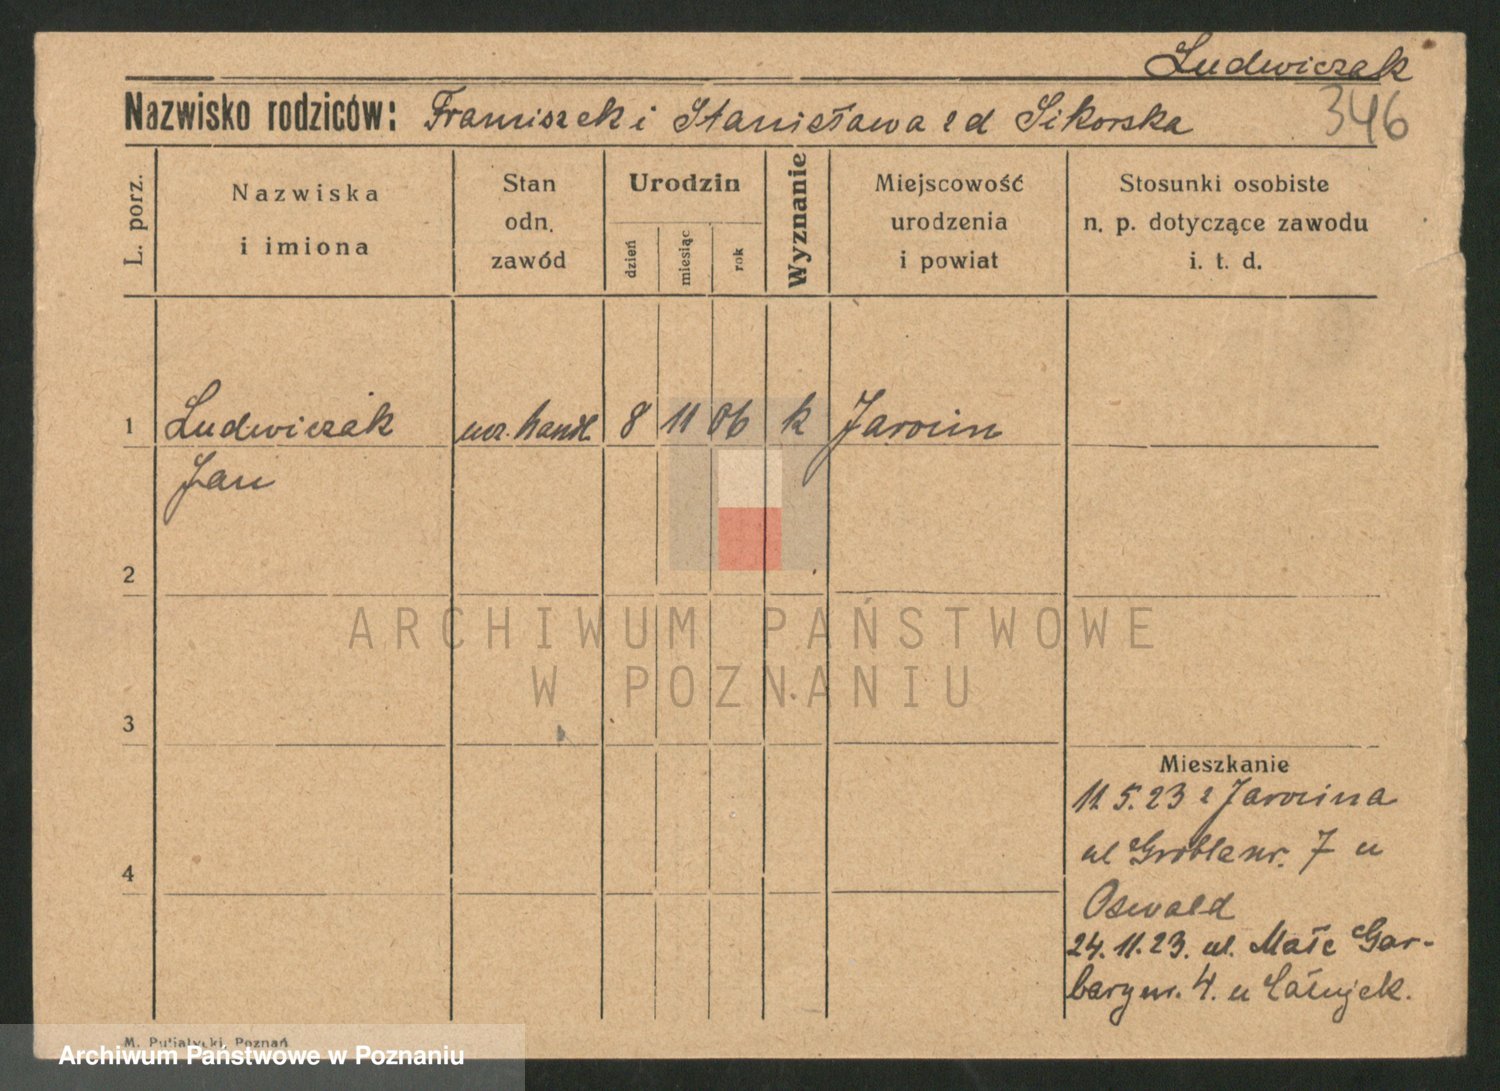 Ludwiczak
Nazwisko rodziców: Franciszek i Stanisława z d Sikorska
346
L. porz.
Nazwiska
i imiona
Stan
odn.
zawód
Urodzin
dzień
miesiąc
rok
Wyznanie
Miejscowość
urodzenia
i powiat
Stosunki osobiste
n. p. dotyczące zawodu
i. t. d.
1 Ludwiczak ucz. handl. 8 11 06 k Jarocin
Jan
2
ARCHIWUM PAŃSTWOWE
W POZNANIU
3
Mieszkanie
11.5.23 z Jarocina
4
ul Groble nr. 7 u
Oswald
24.11.23. ul. Małe Gar-
bary nr. 4. u
M. Putiatycki, Poznań
Archiwum Państwowe w Poznaniu